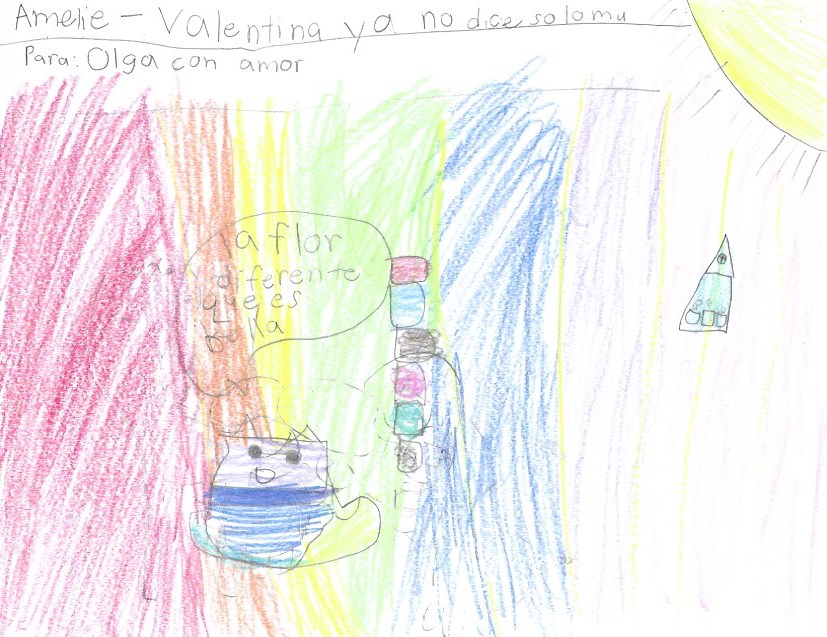 Amelie - Valentina ya no dice solomu
Para: Olga con amor
la flor
diferente
que es
bella